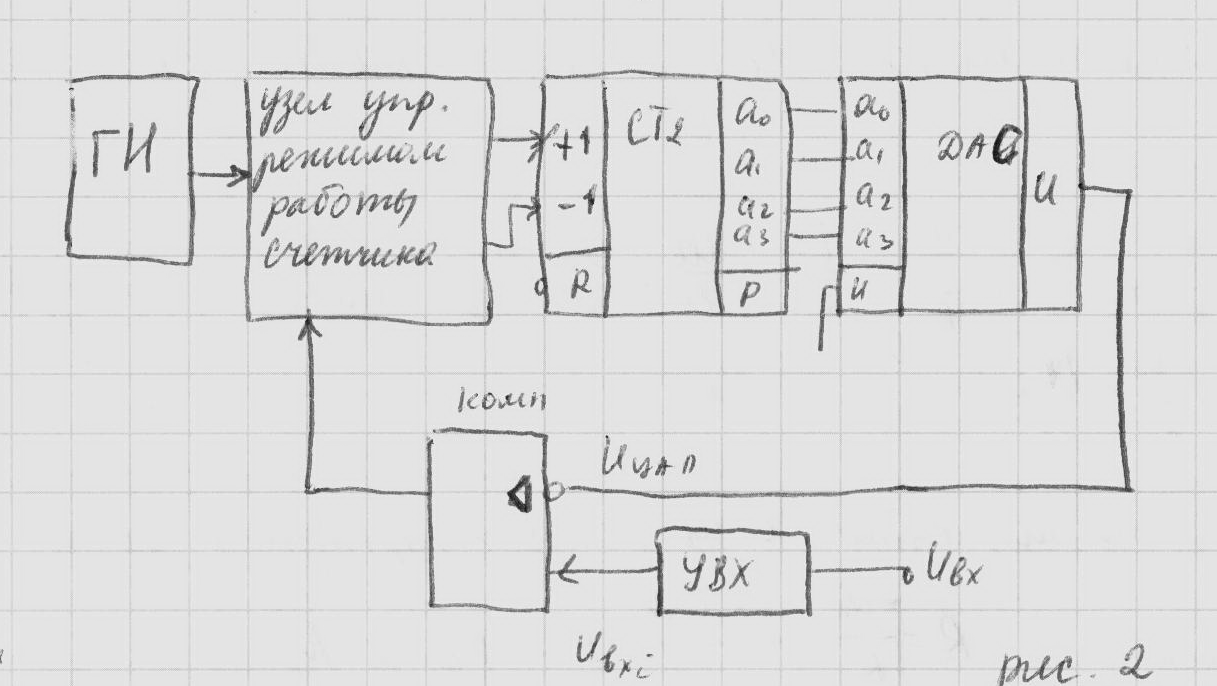 ГИ
узел упр.
режимом
работы
счетчика
+1
-1
R
СТ2
a₀
a₁
a₂
a₃
P
a₀
a₁
a₂
a₃
И
DAC
U
комп
U ЦАП
УВХ
Uвх
Uвхi
рис. 2